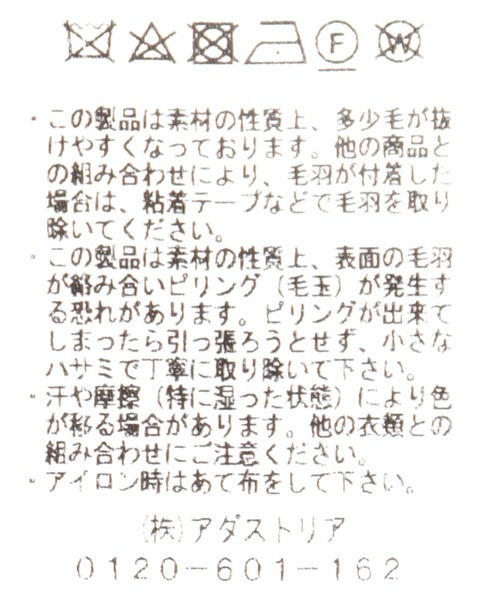 F W
・この製品は素材の性質上、多少毛が抜
けやすくなっております。他の商品と
の組み合わせにより、毛羽が付着した
場合は、粘着テープなどで毛羽を取り
除いてください。
・この製品は素材の性質上、表面の毛羽
が絡み合いピリング（毛玉）が発生す
る恐れがあります。ピリングが出来て
しまったら引っ張ろうとせず、小さな
ハサミで丁寧に取り除いて下さい。
・汗や摩擦（特に湿った状態）により色
が移る場合があります。他の衣類との
組み合わせにご注意ください。
・アイロン時はあて布をして下さい。
（株）アダストリア
0120-601-162